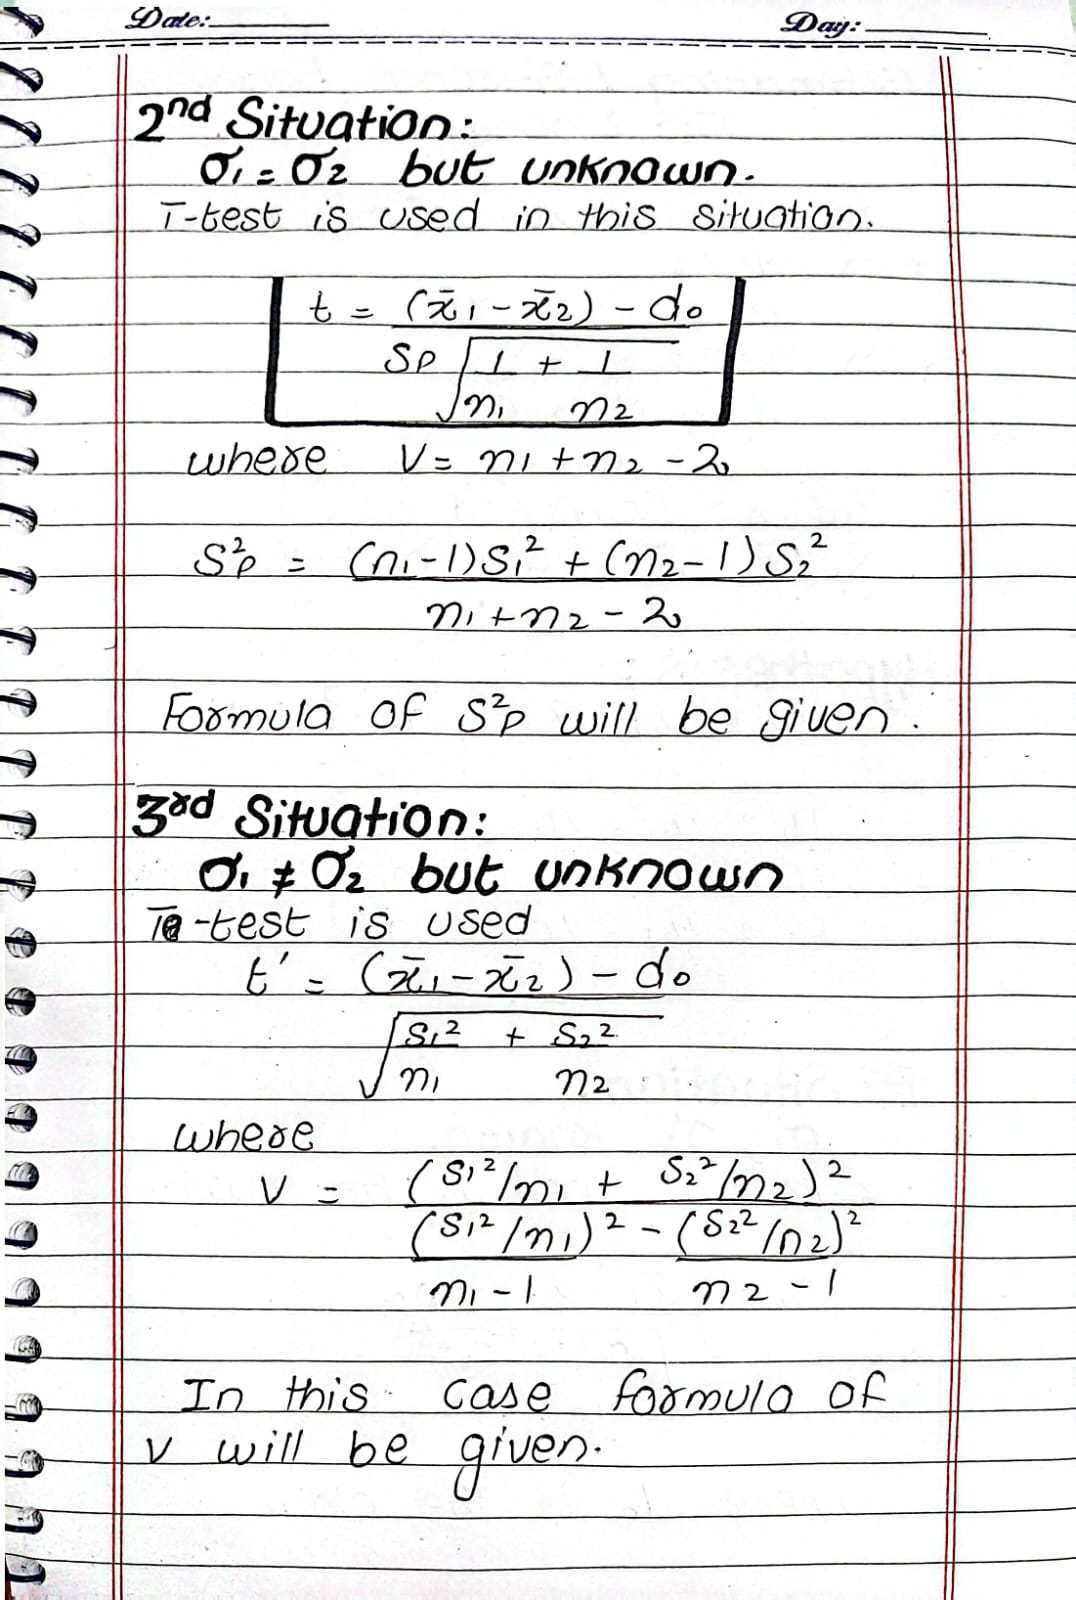 Date: Day:
2nd Situation:
σ1 = σ2 but unknown.
T-test is used in this situation.
t = (x̄1 - x̄2) - do
Sp √ 1 + 1
n1 n2
where V = n1 + n2 - 2
S²p = (n1-1)S1² + (n2-1)S2²
n1 + n2 - 2
Formula of S²p will be given.
3rd Situation:
σ1 ≠ σ2 but unknown
T-test is used
t' = (x̄1 - x̄2) - do
√ S1² + S2²
n1 n2
where
V = (S1²/n1 + S2²/n2)²
(S1²/n1)² - (S2²/n2)²
n1 - 1 n2 - 1
In this case formula of
v will be given.